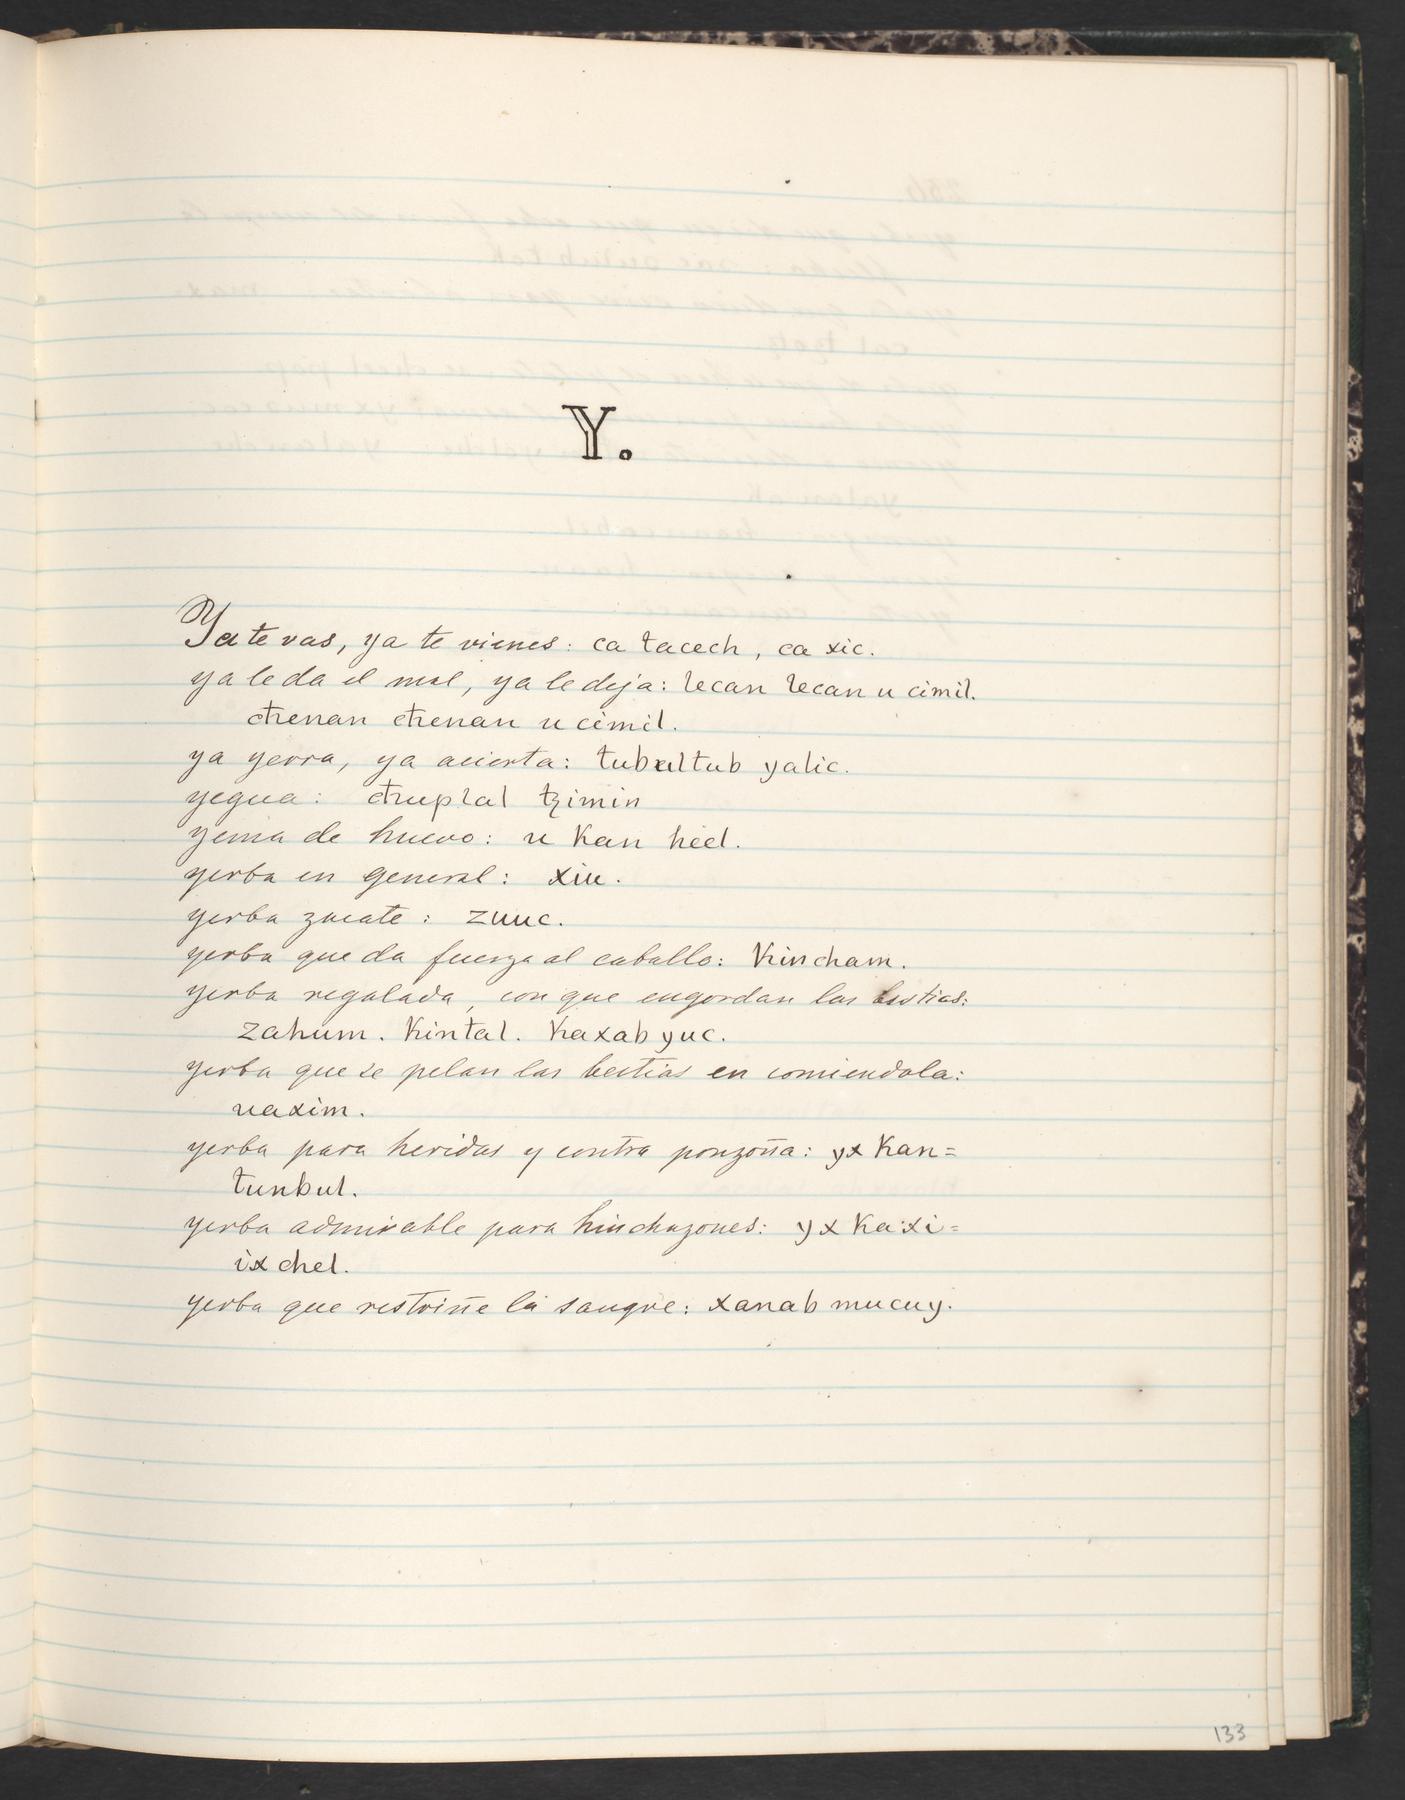 Y.
Ya te vas, ya te vienes: ca tacech, ca xic.
ya le da el mal, ya le deja: lecan lecan u cimil.
chenan chenan u cimil.
ya yerra, ya acierta: tubultub yalic.
yegua: chuplal tzimin
yema de huevo: u kan heel.
yerba en general: xiu.
yerba zacate: zuuc.
yerba que da fuerza al caballo: Kincham.
yerba regalada, con que engordan las bestias:
zahum. Kintal. Kaxab yuc.
yerba que se pelan las bestias en comiendola:
uaxim.
yerba para heridas y contra ponzoña: yx Kan=
tunbul.
yerba admirable para hinchazones: yx Kaxi=
ix chel.
yerba que restriñe la sangre: xanab mucuy.
133